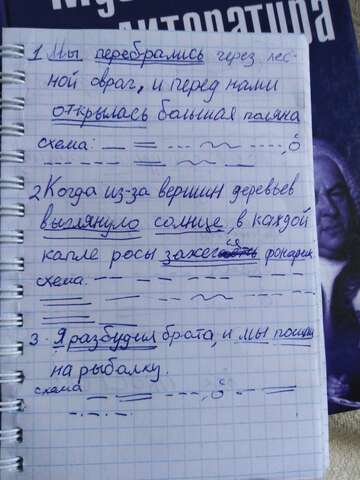 литература
1 Мы перебрались через лес-
ной овраг, и перед нами
открылась большая поляна
схема:
2 Когда из-за вершин деревьев
выглянуло солнце, в каждой
капле росы зажегся фонарик.
схема.
3. Я разбудил брата, и мы пошли
на рыбалку.
схема